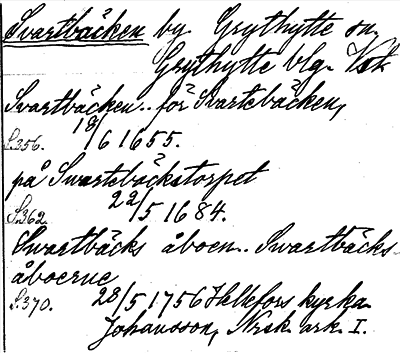 Svartbäcken by Grythytte sn.
Grythytte blg. Vstm.
Svartbäcken.. för Svartebäcken,
S.356. 18/6 1655.
på Swartebäckstorpet
S.362 22/5 1684.
Swartbäcks åboen.. Swartbäcks-
åboerne
S.370. 28/5 1756 Hellefors kyrka
Johansson, Nrsk. ark. I.